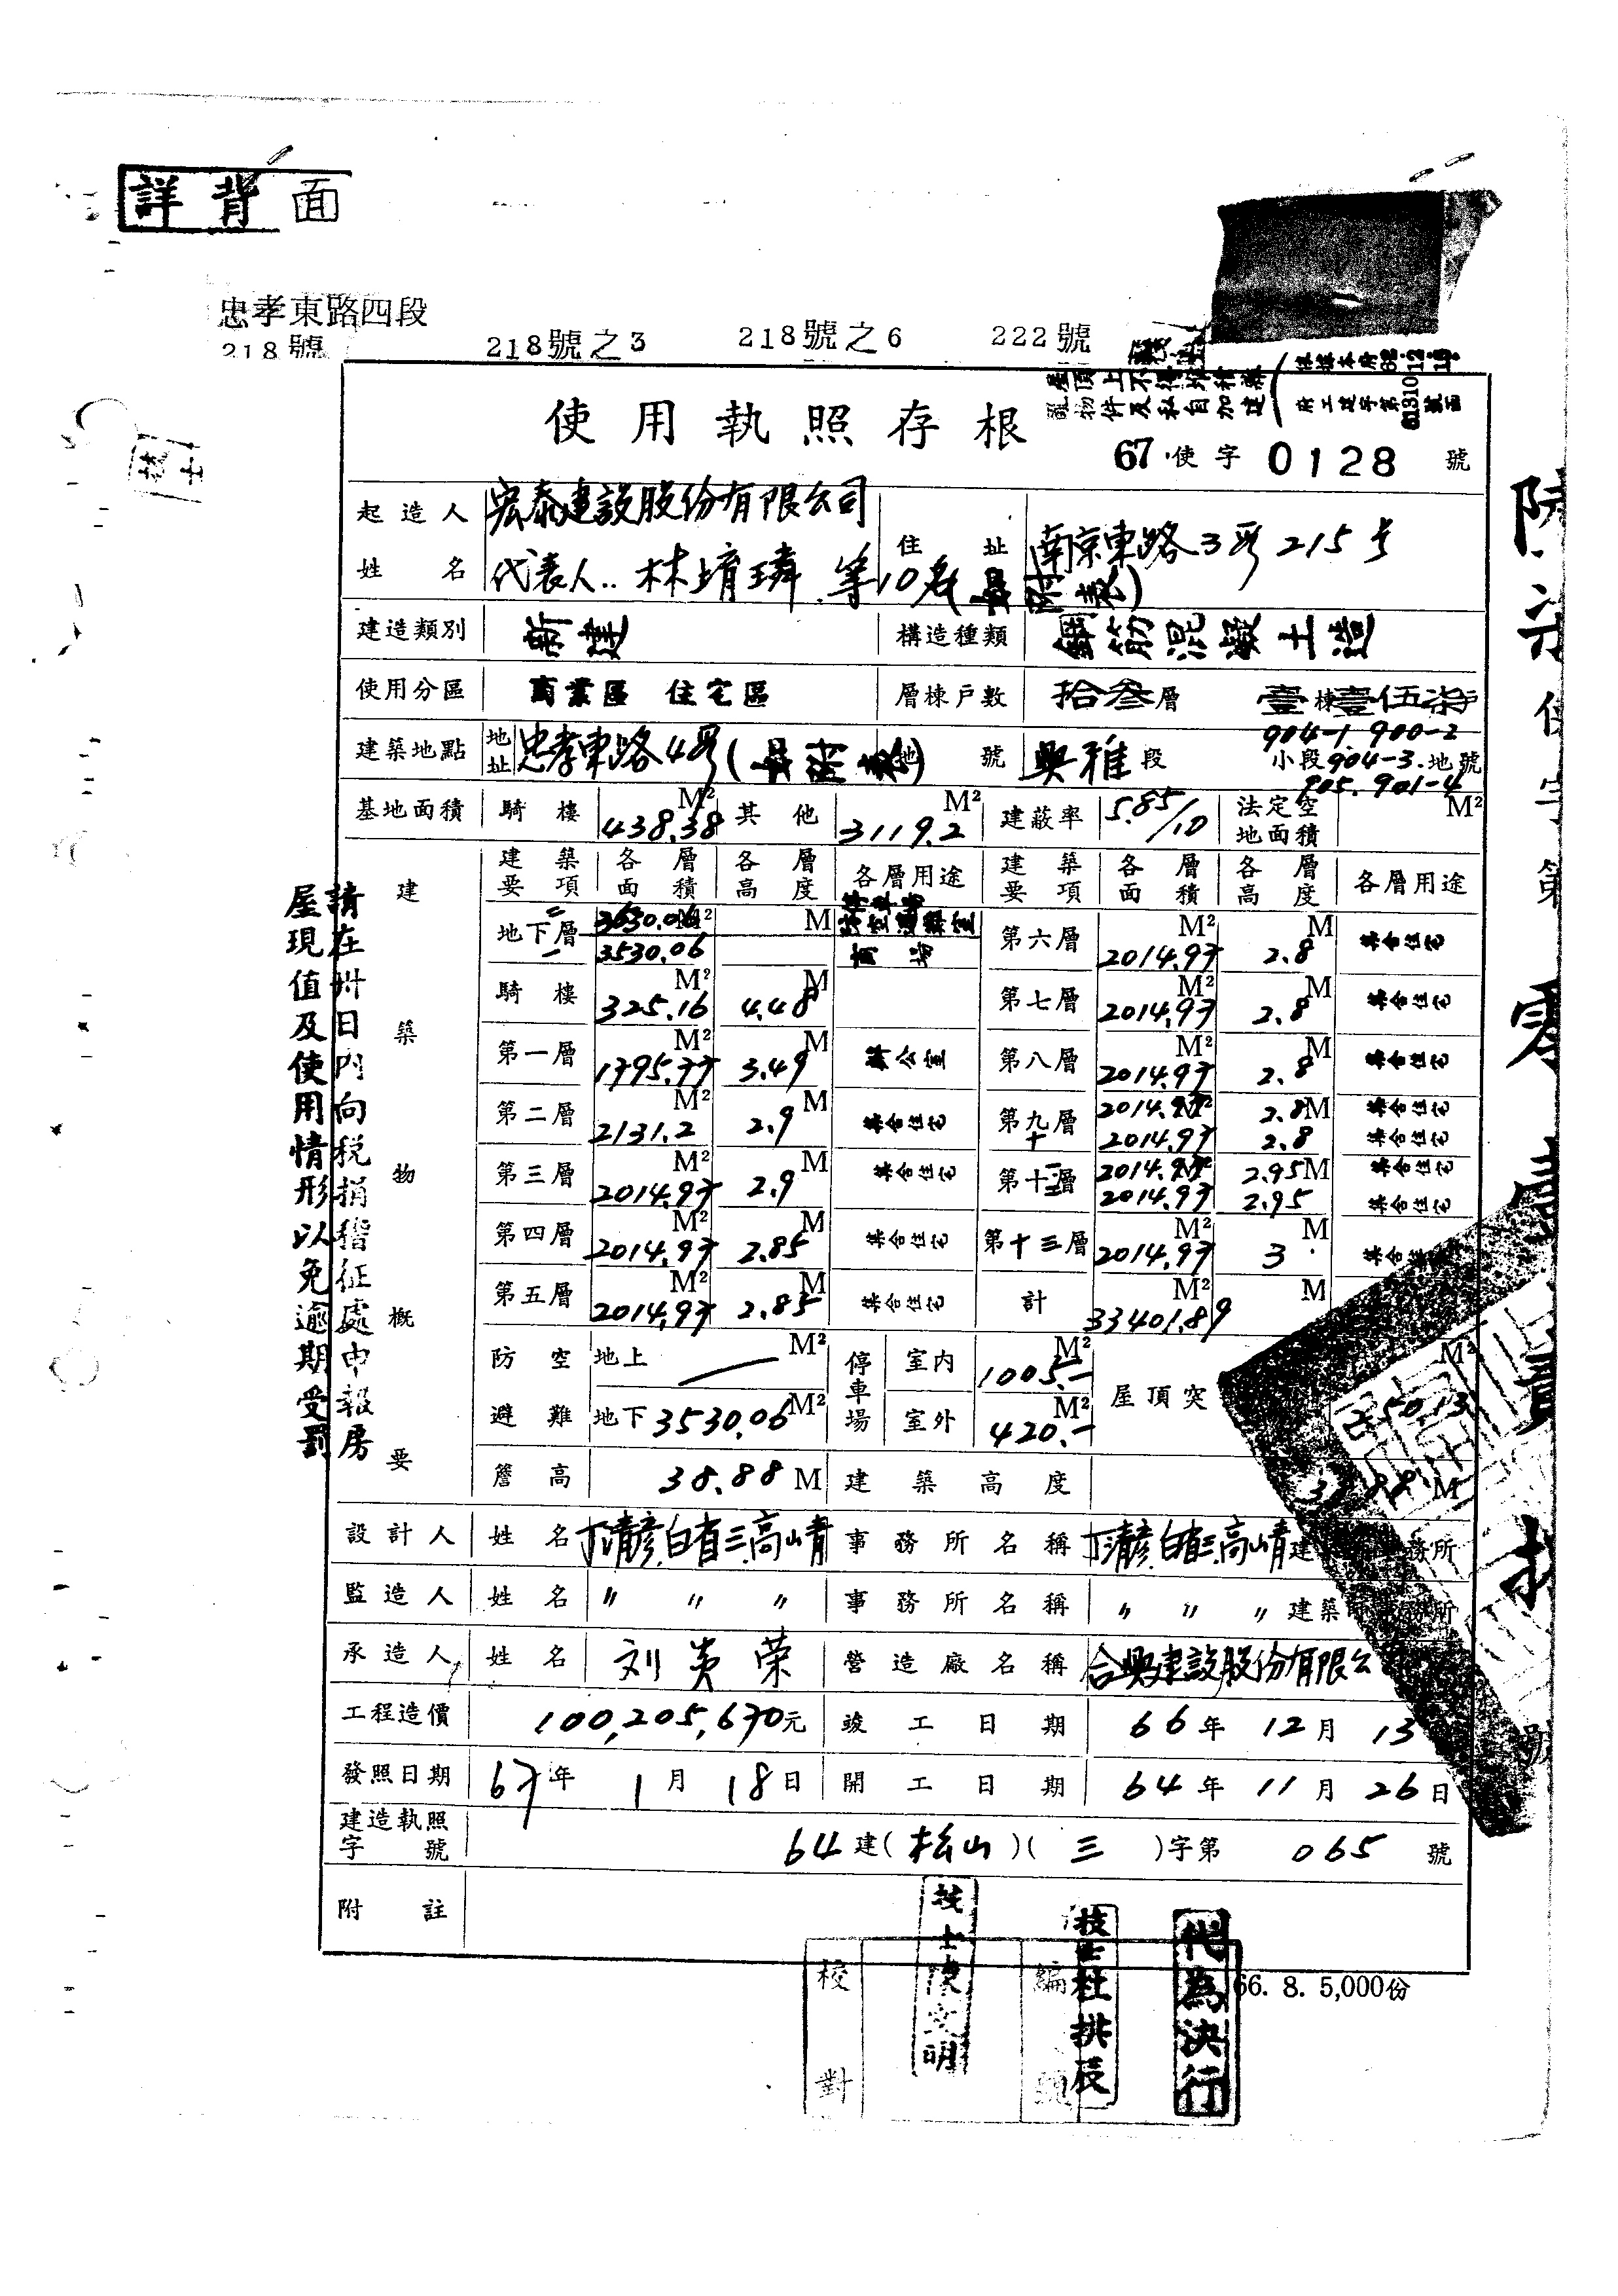 詳背面
忠孝東路四段
218號 218號之3 218號之6 222號
屋頂上不得堆積雜
亂物件及私自加建
使用執照存根
67使字 0128 號
起造人姓名 宏泰建設股份有限公司 代表人..林堉璘等10名(附表) 住址 南京東路3段215号
建造類別 新建 構造種類 鋼筋混凝土造
使用分區 商業區 住宅區 層棟戶數 拾叁層 壹棟壹伍柒戶
建築地點 地址 忠孝東路4段 地號 興雅段 小段 904-1. 900-2 904-3. 905. 901-4 地號
基地面積 騎樓 438.38 M² 其他 3119.2 M² 建蔽率 5.85/10 法定空地面積 M²
建築物概要
建築要項 各層面積 各層高度 各層用途 建築要項 各層面積 各層高度 各層用途
地下層 二 3530.06 M² M
一 3530.06 商場
第六層 2014.97 M² 2.8 M 集合住宅
騎樓 325.16 M² 4.48 M 第七層 2014.97 M² 2.8 M 集合住宅
第一層 1795.77 M² 3.49 M 辦公室 第八層 2014.97 M² 2.8 M 集合住宅
第二層 2131.2 M² 2.9 M 集合住宅 第九層 2014.97 M² 2.8 M 集合住宅
十 2014.97 2.8 集合住宅
第三層 2014.97 M² 2.9 M 集合住宅 第十一二層 2014.97 M² 2.95 M 集合住宅
2014.97 2.95 集合住宅
第四層 2014.97 M² 2.85 M 集合住宅 第十三層 2014.97 M² 3. M 集合住宅
第五層 2014.97 M² 2.85 M 集合住宅 計 33401.89 M² M
防空避難 地上 — M² 停車場 室內 1005.- M² 屋頂突 M²
地下 3530.06 M² 室外 420.- M²
簷高 38.88 M 建築高度 M
設計人 姓名 丁清彥.白省三.高山青 事務所名稱 丁清彥.白省三.高山青 建 務所
監造人 姓名 〃 〃 〃 事務所名稱 〃 〃 〃 建築 所
承造人 姓名 刘炎荣 營造廠名稱 合興建設股份有限公
工程造價 100,205,670元 竣工日期 66年12月13
發照日期 67年1月18日 開工日期 64年11月26日
建造執照字號 64建(松山)(三)字第065號
附註
請在卅日內向稅捐稽征處申報房
屋現值及使用情形以免逾期受罰
校對
技士陳文明
編
技士杜拱辰
代為決行
66. 8. 5,000份